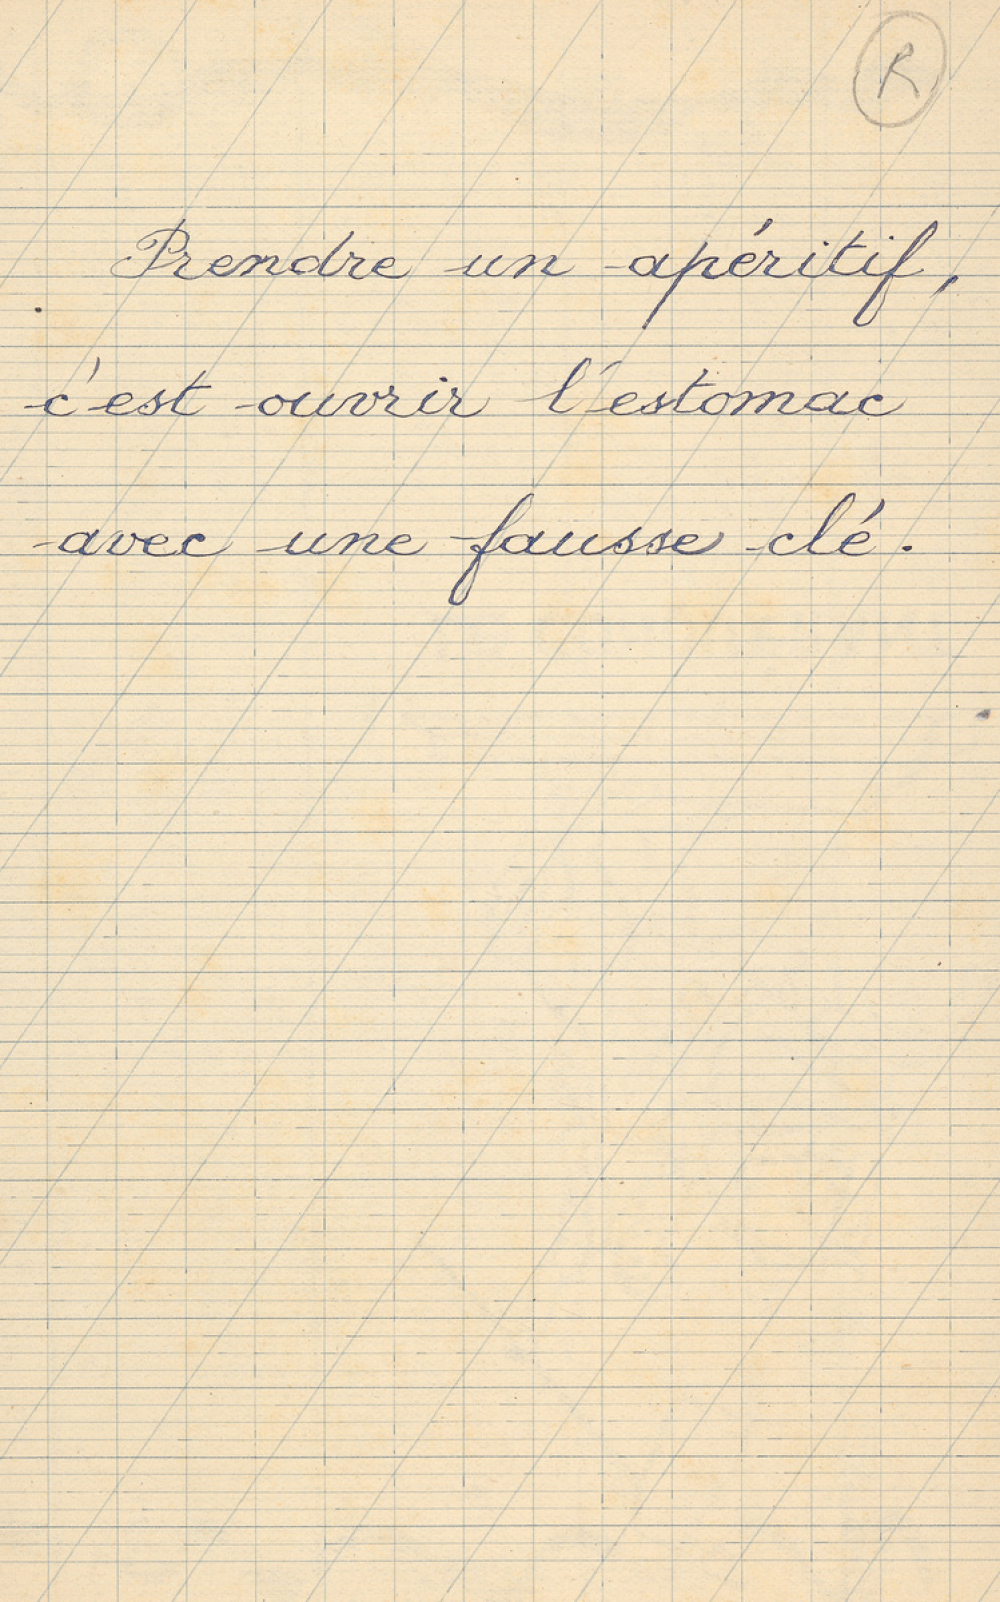 R
Prendre un apéritif,
c'est ouvrir l'estomac
avec une fausse clé.